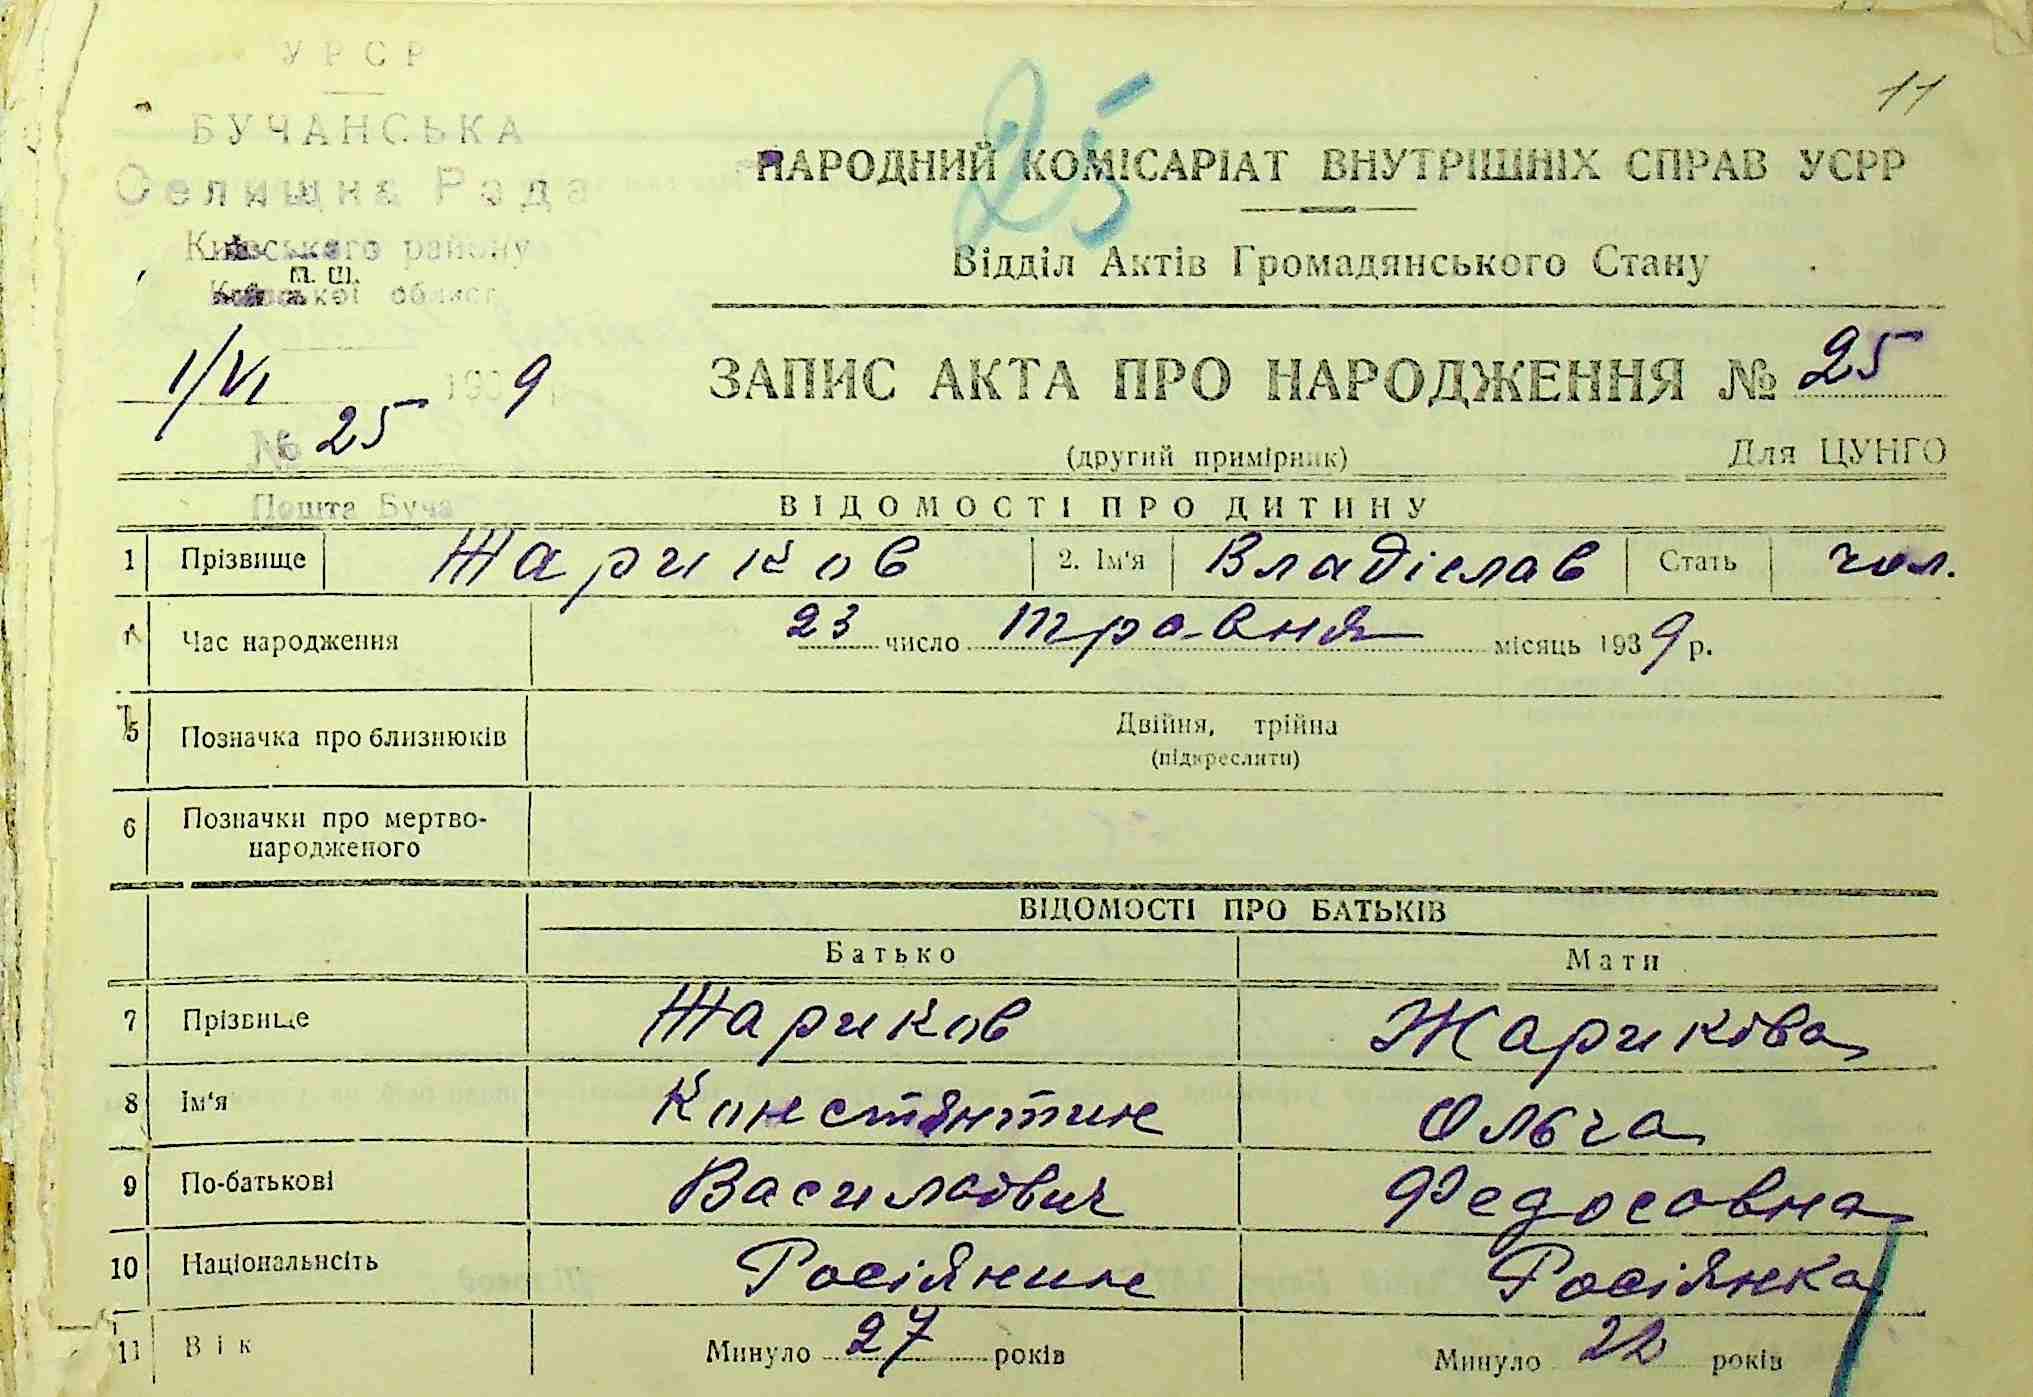 УРСР
11
БУЧАНСЬКА
Селищна Рада
25
НАРОДНИЙ КОМІСАРІАТ ВНУТРІШНІХ СПРАВ УСРР
Київського району
м. ш.
Київської област
Відділ Актів Громадянського Стану
1/VI 1939 р.
ЗАПИС АКТА ПРО НАРОДЖЕННЯ № 25
№ 25
(другий примірник) Для ЦУНГО
Пошта Буча
ВІДОМОСТІ ПРО ДИТИНУ
1 Прізвище Жариков 2. Ім'я Владіслав Стать чол.
Час народження 23 число травня місяць 1939 р.
5 Позначка про близнюків Двійня, трійна
(підкреслити)
6 Позначки про мертво-
народженого
ВІДОМОСТІ ПРО БАТЬКІВ
Батько Мати
7 Прізвище Жариков Жарикова
8 Ім'я Констянтин Ольга
9 По-батькові Васильович Федосовна
10 Національнсіть Росіянин Росіянка
11 Вік Минуло 27 років Минуло 22 років